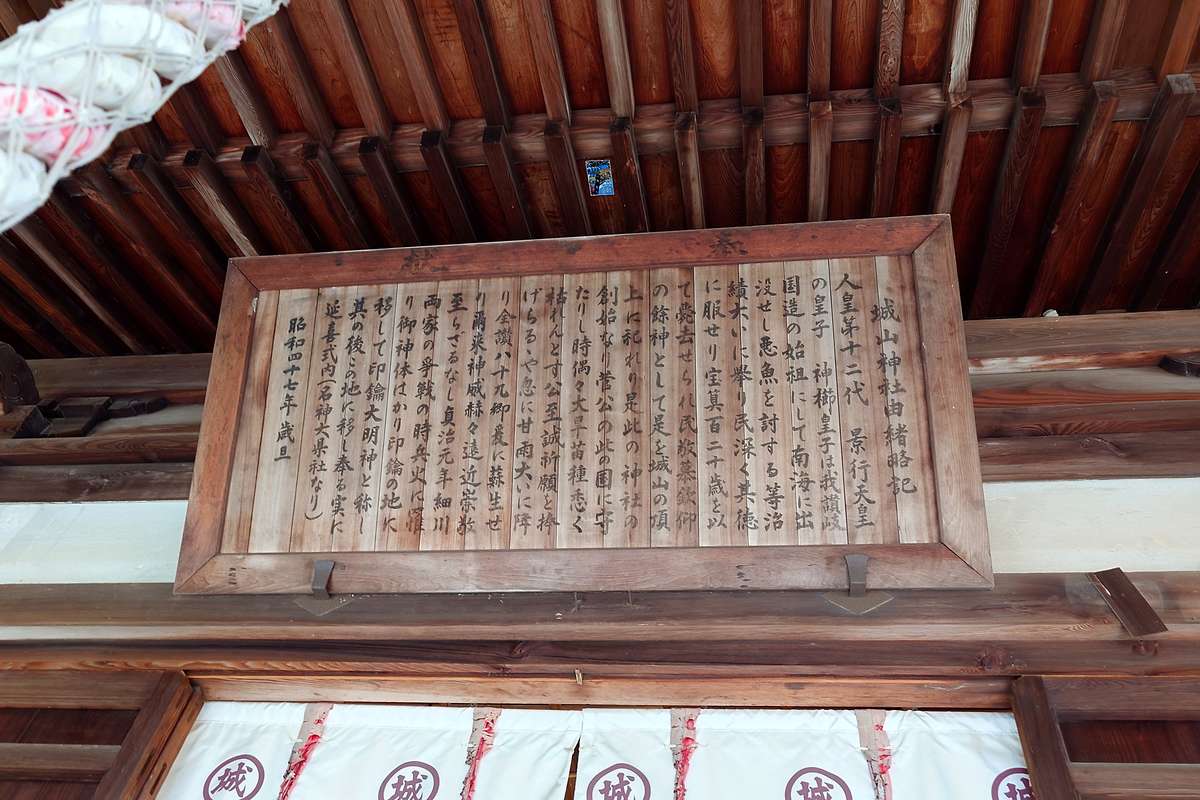 奉
献
城山神社由緒略記
人皇第十二代 景行天皇
の皇子 神櫛皇子は我讃岐
国造の始祖にして南海に出
没せし悪魚を討する等治
績大いに挙り民深く其徳
に服せり宝算百二十歳を以
て薨去せられ民敬慕欽仰
の餘神として是を城山の頂
上に祀れり是此の神社の
創始なり菅公の此の国に守
たりし時偶々大旱苗種悉く
枯れんとす公至誠祈願を捧
げらるるや忽に甘雨大いに降
り全讃八十九郷爰に蘇生せ
り爾来神威赫々遠近崇敬
至らざるなし貞治元年細川
両家の争戦の時兵火に罹
り御神体はかり印鑰の地に
移して印鑰大明神と称し
其の後この地に移し奉る実に
延喜式内(名神大県社なり)
昭和四十七年 歳旦
城
城
城
城
城